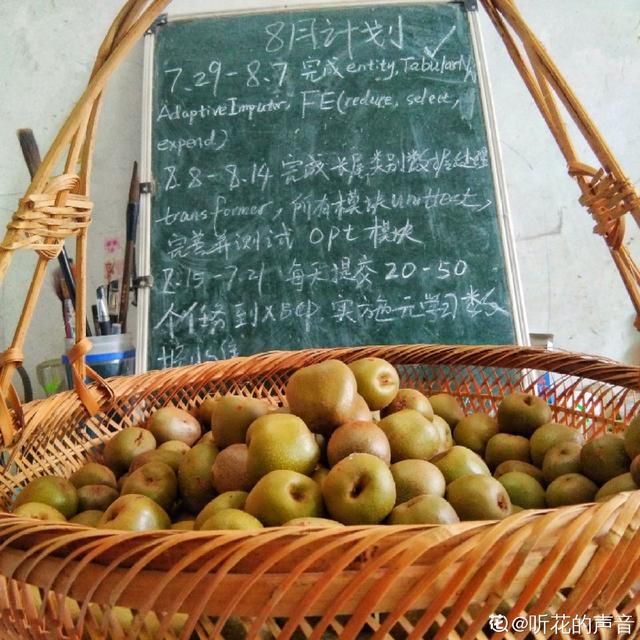 8月计划
7.29-8.7 完成entity, Tabular
AdaptiveImputer, FE(reduce, select,
expend)
8.8-8.14 完成长尾类别数据处理
transformer, 所有模块unittest,
完善并测试 opt 模块
8.15-7.21 每天提交 20-50
个任务到 实施元学习数
@听花的声音